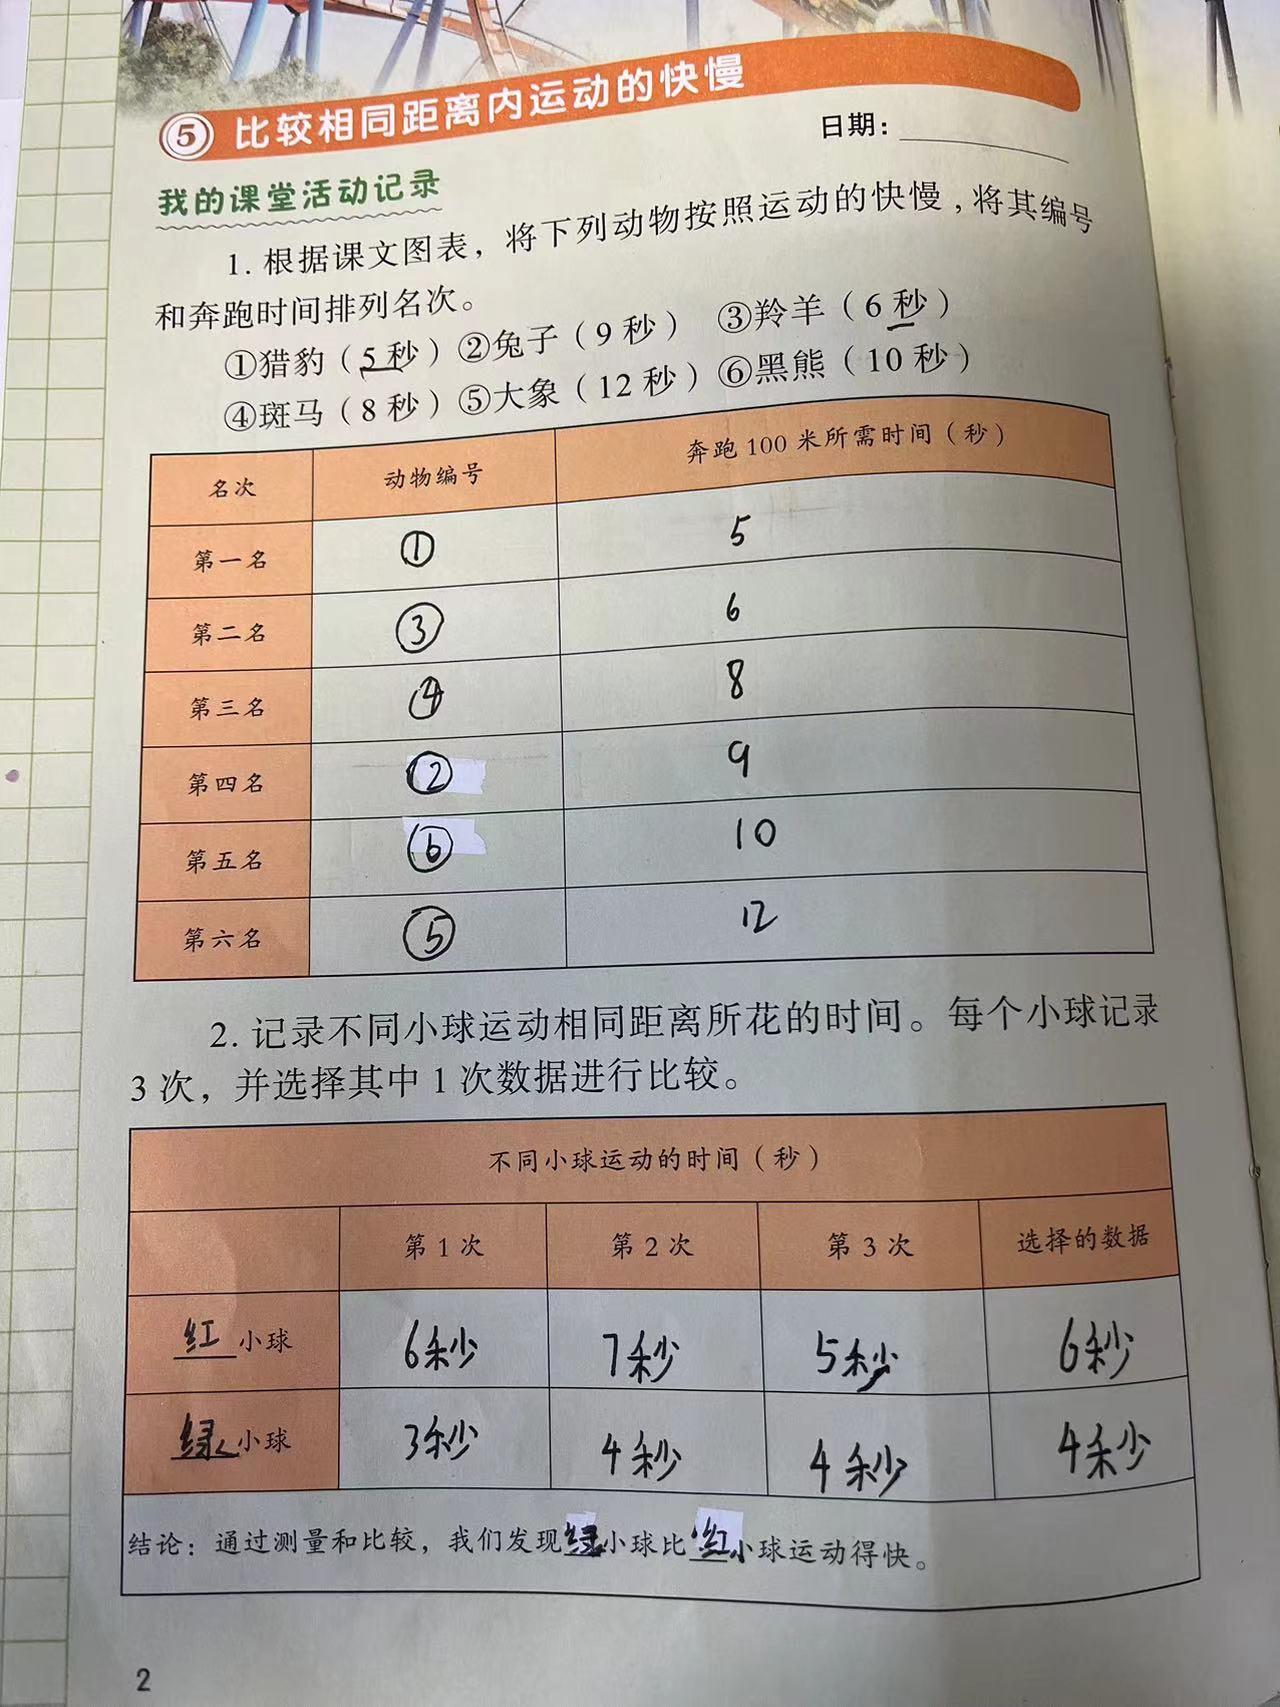 ⑤ 比较相同距离内运动的快慢
日期：
我的课堂活动记录
1. 根据课文图表，将下列动物按照运动的快慢，将其编号
和奔跑时间排列名次。
①猎豹（5秒）②兔子（9秒） ③羚羊（6秒）
④斑马（8秒）⑤大象（12秒）⑥黑熊（10秒）
名次 动物编号 奔跑 100 米所需时间（秒）
第一名 ① 5
第二名 ③ 6
第三名 ④ 8
第四名 ② 9
第五名 ⑥ 10
第六名 ⑤ 12
2. 记录不同小球运动相同距离所花的时间。每个小球记录
3 次，并选择其中 1 次数据进行比较。
不同小球运动的时间（秒）
第 1 次 第 2 次 第 3 次 选择的数据
红小球 6秒 7秒 5秒 6秒
绿小球 3秒 4秒 4秒 4秒
结论：通过测量和比较，我们发现绿小球比红小球运动得快。
2